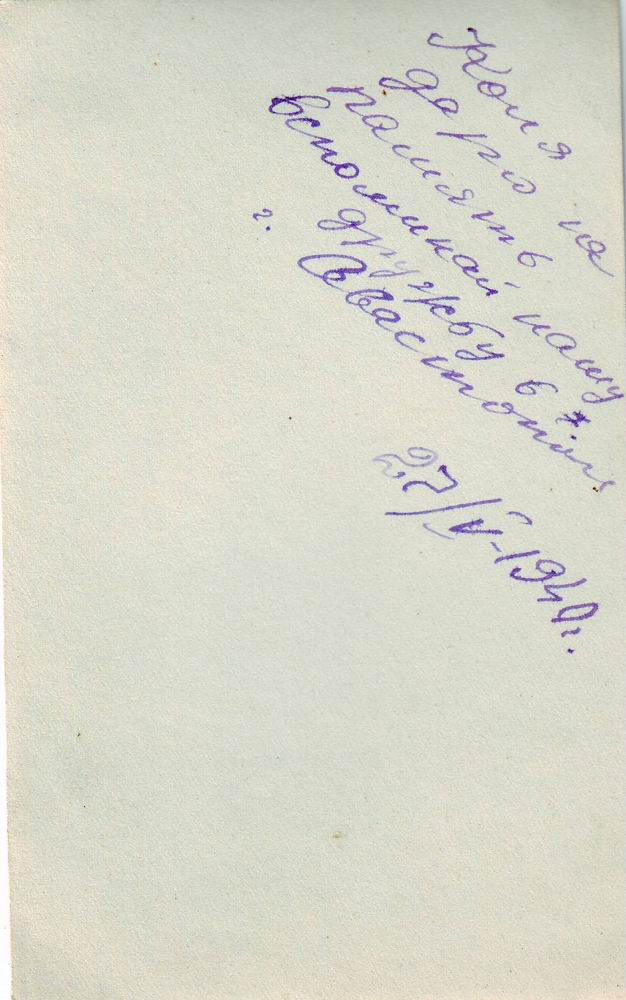 Коля
дарю на
память
вспоминай нашу
дружбу в г.
г. Севастополь
27/V-1940г.